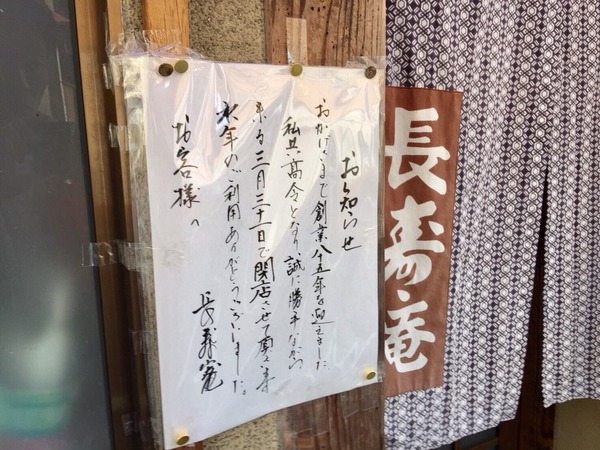 お知らせ
おかげさまで創業八十五年を迎えました
私共高令となり、誠に勝手ながら
来る三月三十一日で閉店させて頂きます
永年のご利用ありがとうございました。
お客様へ
長寿庵
長寿庵